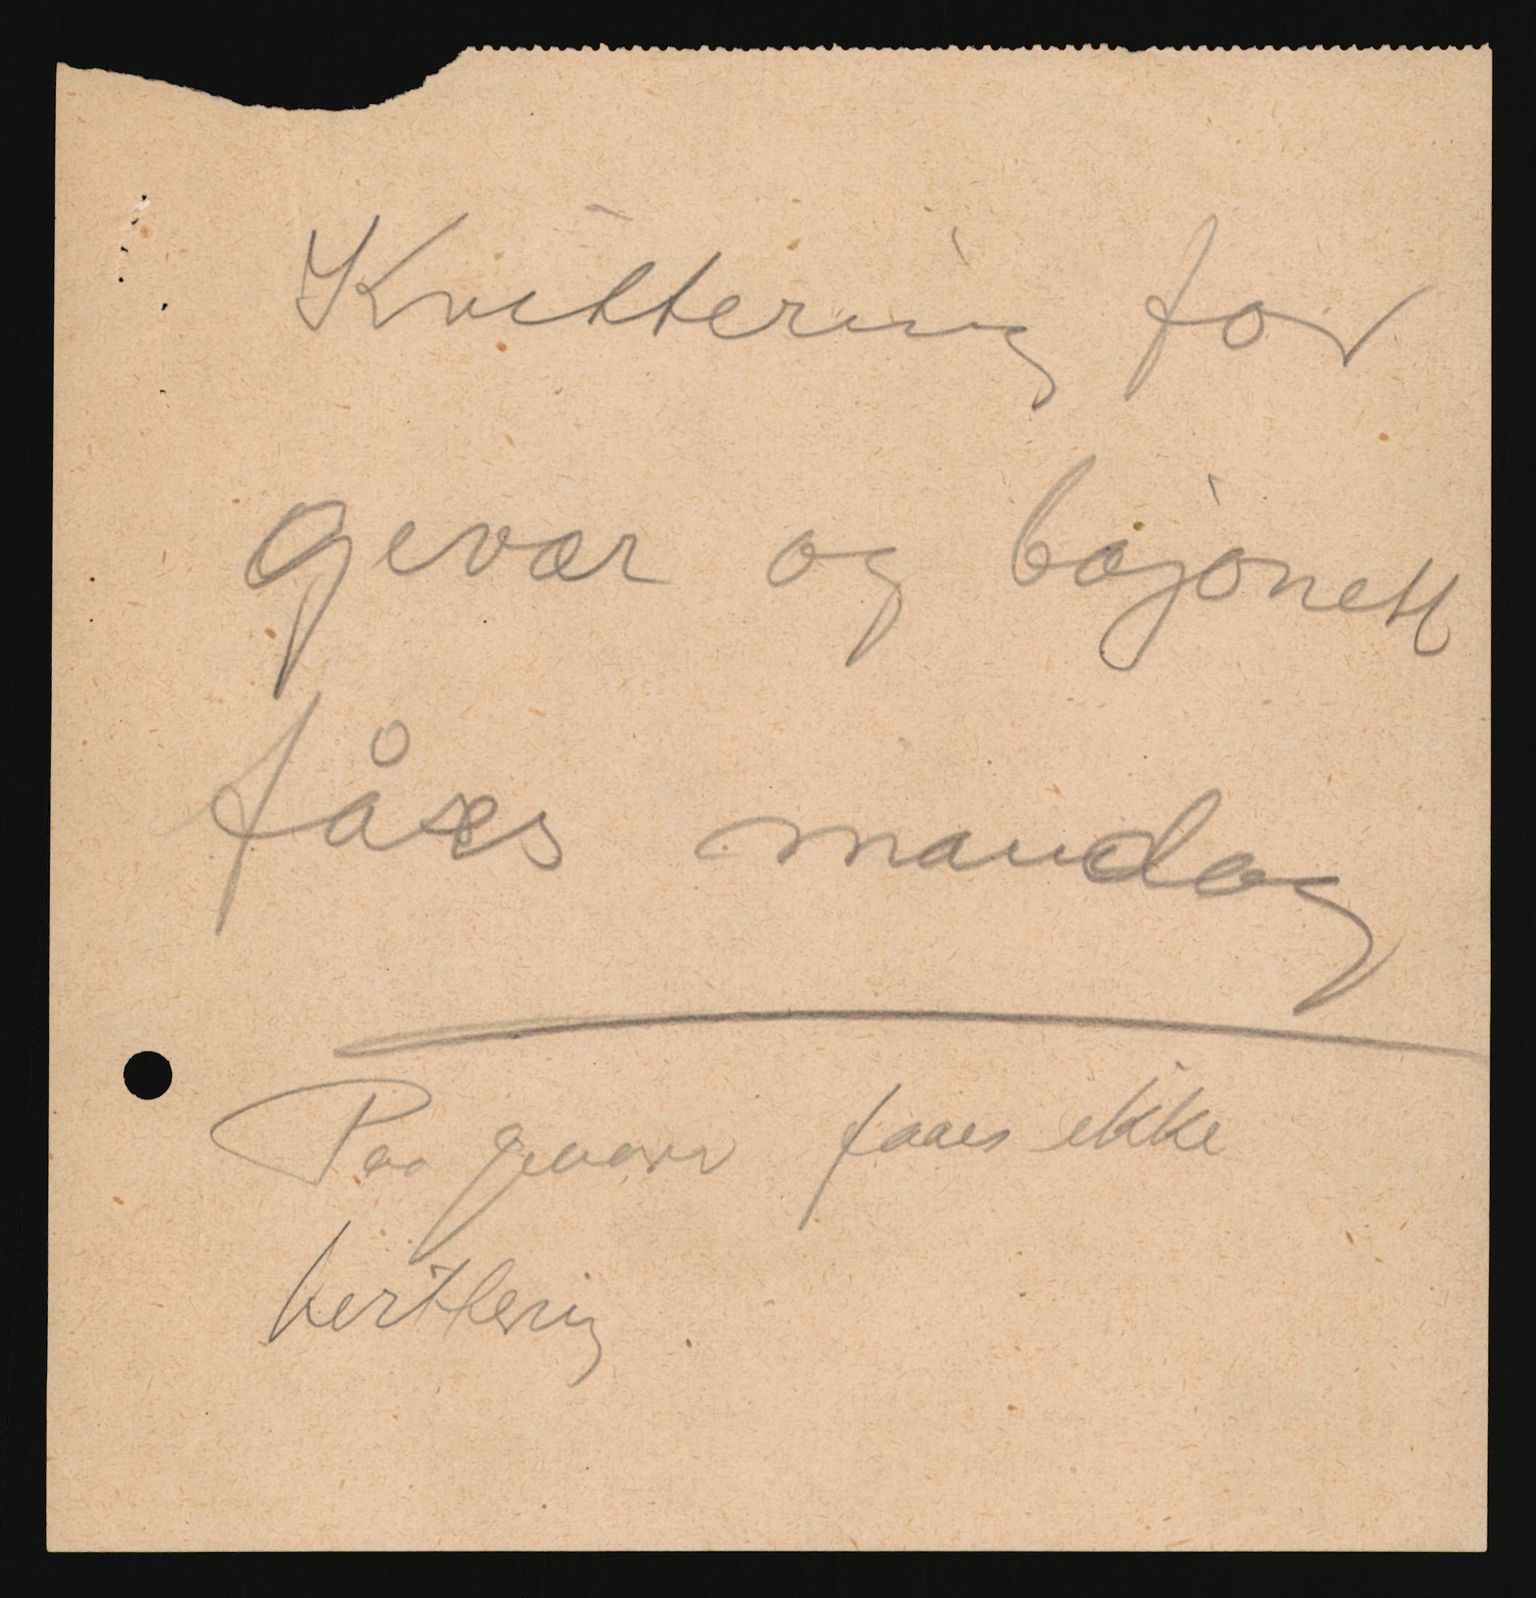 Kvittering for
gevær og bajonett
fåes mandag
Paa gevær faaes ikke
kvittering.